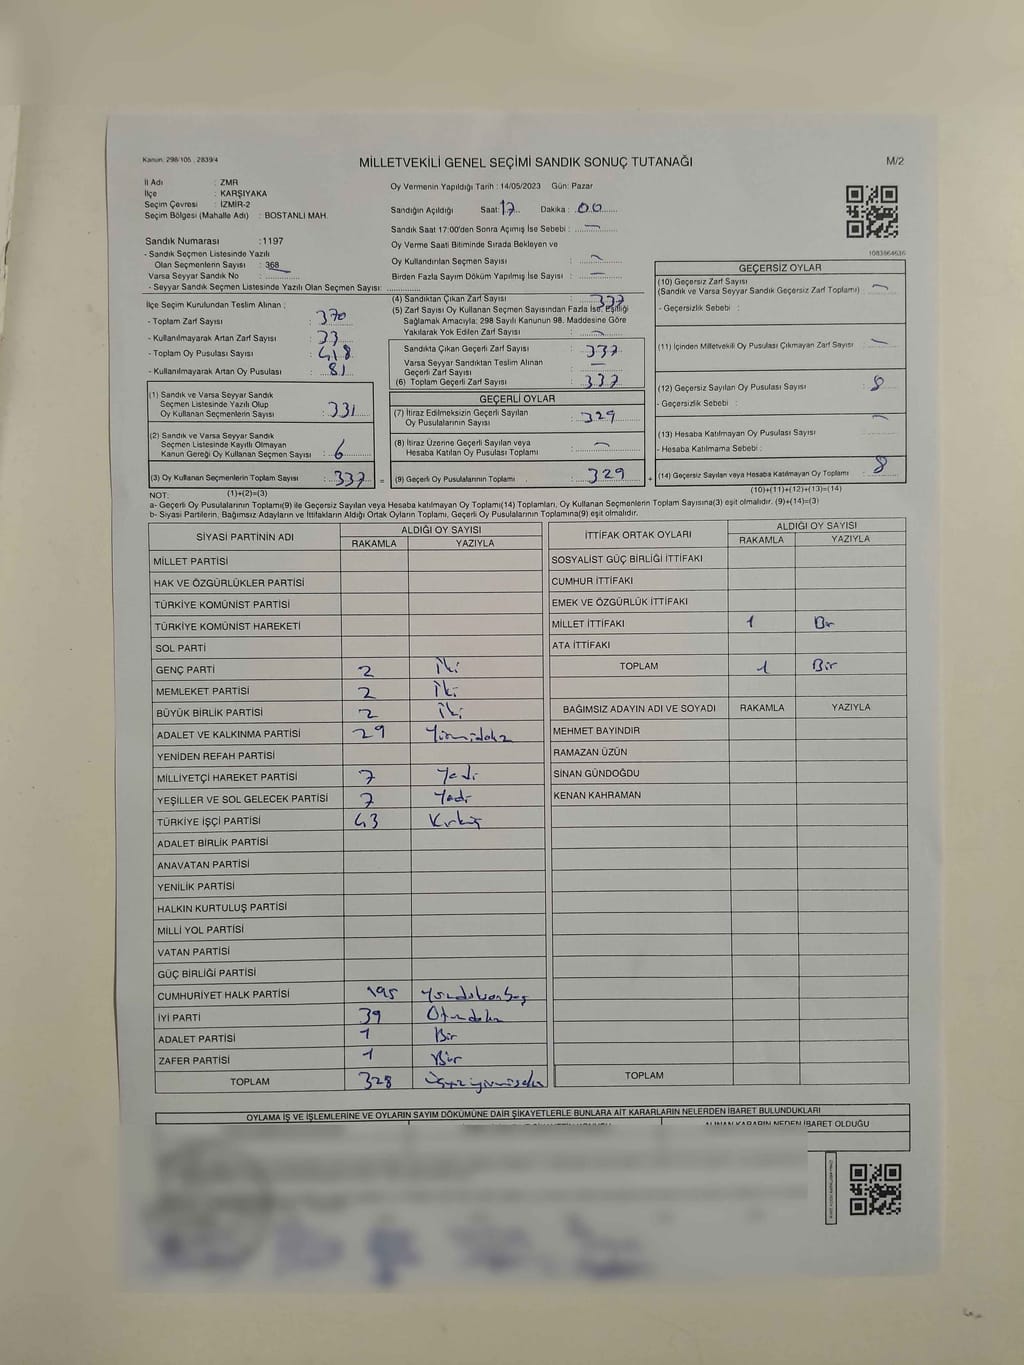 Kanun: 298/105 , 2839/4
MİLLETVEKİLİ GENEL SEÇİMİ SANDIK SONUÇ TUTANAĞI
M/2
İl Adı : ZMR
İlçe : KARŞIYAKA
Seçim Çevresi : İZMİR-2
Seçim Bölgesi (Mahalle Adı) : BOSTANLI MAH.
Oy Vermenin Yapıldığı Tarih : 14/05/2023 Gün: Pazar
Sandığın Açıldığı Saat: 17 Dakika : 00
Sandık Saat 17:00'den Sonra Açımış İse Sebebi : —
Oy Verme Saati Bitiminde Sırada Bekleyen ve
Oy Kullandırılan Seçmen Sayısı : —
Birden Fazla Sayım Döküm Yapılmış İse Sayısı : —
1083864636
Sandık Numarası :1197
- Sandık Seçmen Listesinde Yazılı
Olan Seçmenlerin Sayısı : 368
Varsa Seyyar Sandık No :
- Seyyar Sandık Seçmen Listesinde Yazılı Olan Seçmen Sayısı:
İlçe Seçim Kurulundan Teslim Alınan :
- Toplam Zarf Sayısı : 370
- Kullanılmayarak Artan Zarf Sayısı : 33
- Toplam Oy Pusulası Sayısı : 418
- Kullanılmayarak Artan Oy Pusulası : 81
(1) Sandık ve Varsa Seyyar Sandık
Seçmen Listesinde Yazılı Olup
Oy Kullanan Seçmenlerin Sayısı : 331
(2) Sandık ve Varsa Seyyar Sandık
Seçmen Listesinde Kayıtlı Olmayan
Kanun Gereği Oy Kullanan Seçmen Sayısı : 6
(3) Oy Kullanan Seçmenlerin Toplam Sayısı : 337 =
(4) Sandıktan Çıkan Zarf Sayısı : 337
(5) Zarf Sayısı Oy Kullanan Seçmen Sayısından Fazla İse: Eşitliği
Sağlamak Amacıyla; 298 Sayılı Kanunun 98. Maddesine Göre
Yakılarak Yok Edilen Zarf Sayısı : —
Sandıkta Çıkan Geçerli Zarf Sayısı : 337
Varsa Seyyar Sandıktan Teslim Alınan
Geçerli Zarf Sayısı : —
(6) Toplam Geçerli Zarf Sayısı : 337
GEÇERLİ OYLAR
(7) İtiraz Edilmeksizin Geçerli Sayılan
Oy Pusulalarının Sayısı : 329
(8) İtiraz Üzerine Geçerli Sayılan veya
Hesaba Katılan Oy Pusulası Toplamı : —
(9) Geçerli Oy Pusulalarının Toplamı : 329 +
GEÇERSİZ OYLAR
(10) Geçersiz Zarf Sayısı
(Sandık ve Varsa Seyyar Sandık Geçersiz Zarf Toplamı) : —
- Geçersizlik Sebebi :
(11) İçinden Milletvekili Oy Pusulası Çıkmayan Zarf Sayısı : —
(12) Geçersiz Sayılan Oy Pusulası Sayısı : 8
- Geçersizlik Sebebi :
(13) Hesaba Katılmayan Oy Pusulası Sayısı : —
- Hesaba Katılmama Sebebi :
(14) Geçersiz Sayılan veya Hesaba Katılmayan Oy Toplamı : 8
NOT: (1)+(2)=(3)
(10)+(11)+(12)+(13)=(14)
a- Geçerli Oy Pusulalarının Toplamı(9) ile Geçersiz Sayılan veya Hesaba katılmayan Oy Toplamı(14) Toplamları, Oy Kullanan Seçmenlerin Toplam Sayısına(3) eşit olmalıdır. (9)+(14)=(3)
b- Siyasi Partilerin, Bağımsız Adayların ve İttifakların Aldığı Ortak Oyların Toplamı, Geçerli Oy Pusulalarının Toplamına(9) eşit olmalıdır.
SİYASİ PARTİNİN ADI ALDIĞI OY SAYISI
RAKAMLA YAZIYLA
MİLLET PARTİSİ
HAK VE ÖZGÜRLÜKLER PARTİSİ
TÜRKİYE KOMÜNİST PARTİSİ
TÜRKİYE KOMÜNİST HAREKETİ
SOL PARTİ
GENÇ PARTİ 2 İki
MEMLEKET PARTİSİ 2 İki
BÜYÜK BİRLİK PARTİSİ 2 İki
ADALET VE KALKINMA PARTİSİ 29 Yirmidokuz
YENİDEN REFAH PARTİSİ
MİLLİYETÇİ HAREKET PARTİSİ 7 Yedi
YEŞİLLER VE SOL GELECEK PARTİSİ 7 Yedi
TÜRKİYE İŞÇİ PARTİSİ 43 Kırküç
ADALET BİRLİK PARTİSİ
ANAVATAN PARTİSİ
YENİLİK PARTİSİ
HALKIN KURTULUŞ PARTİSİ
MİLLİ YOL PARTİSİ
VATAN PARTİSİ
GÜÇ BİRLİĞİ PARTİSİ
CUMHURİYET HALK PARTİSİ 195 Yüzdoksanbeş
İYİ PARTİ 39 Otuzdokuz
ADALET PARTİSİ 1 Bir
ZAFER PARTİSİ 1 Bir
TOPLAM 328 Üçyüzyirmisekiz
İTTİFAK ORTAK OYLARI ALDIĞI OY SAYISI
RAKAMLA YAZIYLA
SOSYALİST GÜÇ BİRLİĞİ İTTİFAKI
CUMHUR İTTİFAKI
EMEK VE ÖZGÜRLÜK İTTİFAKI
MİLLET İTTİFAKI 1 Bir
ATA İTTİFAKI
TOPLAM 1 Bir
BAĞIMSIZ ADAYIN ADI VE SOYADI RAKAMLA YAZIYLA
MEHMET BAYINDIR
RAMAZAN ÜZÜN
SİNAN GÜNDOĞDU
KENAN KAHRAMAN
TOPLAM
OYLAMA İŞ VE İŞLEMLERİNE VE OYLARIN SAYIM DÖKÜMÜNE DAİR ŞİKAYETLERLE BUNLARA AİT KARARLARIN NELERDEN İBARET BULUNDUKLARI
ALINAN KARARIN NEDEN İBARET OLDUĞU